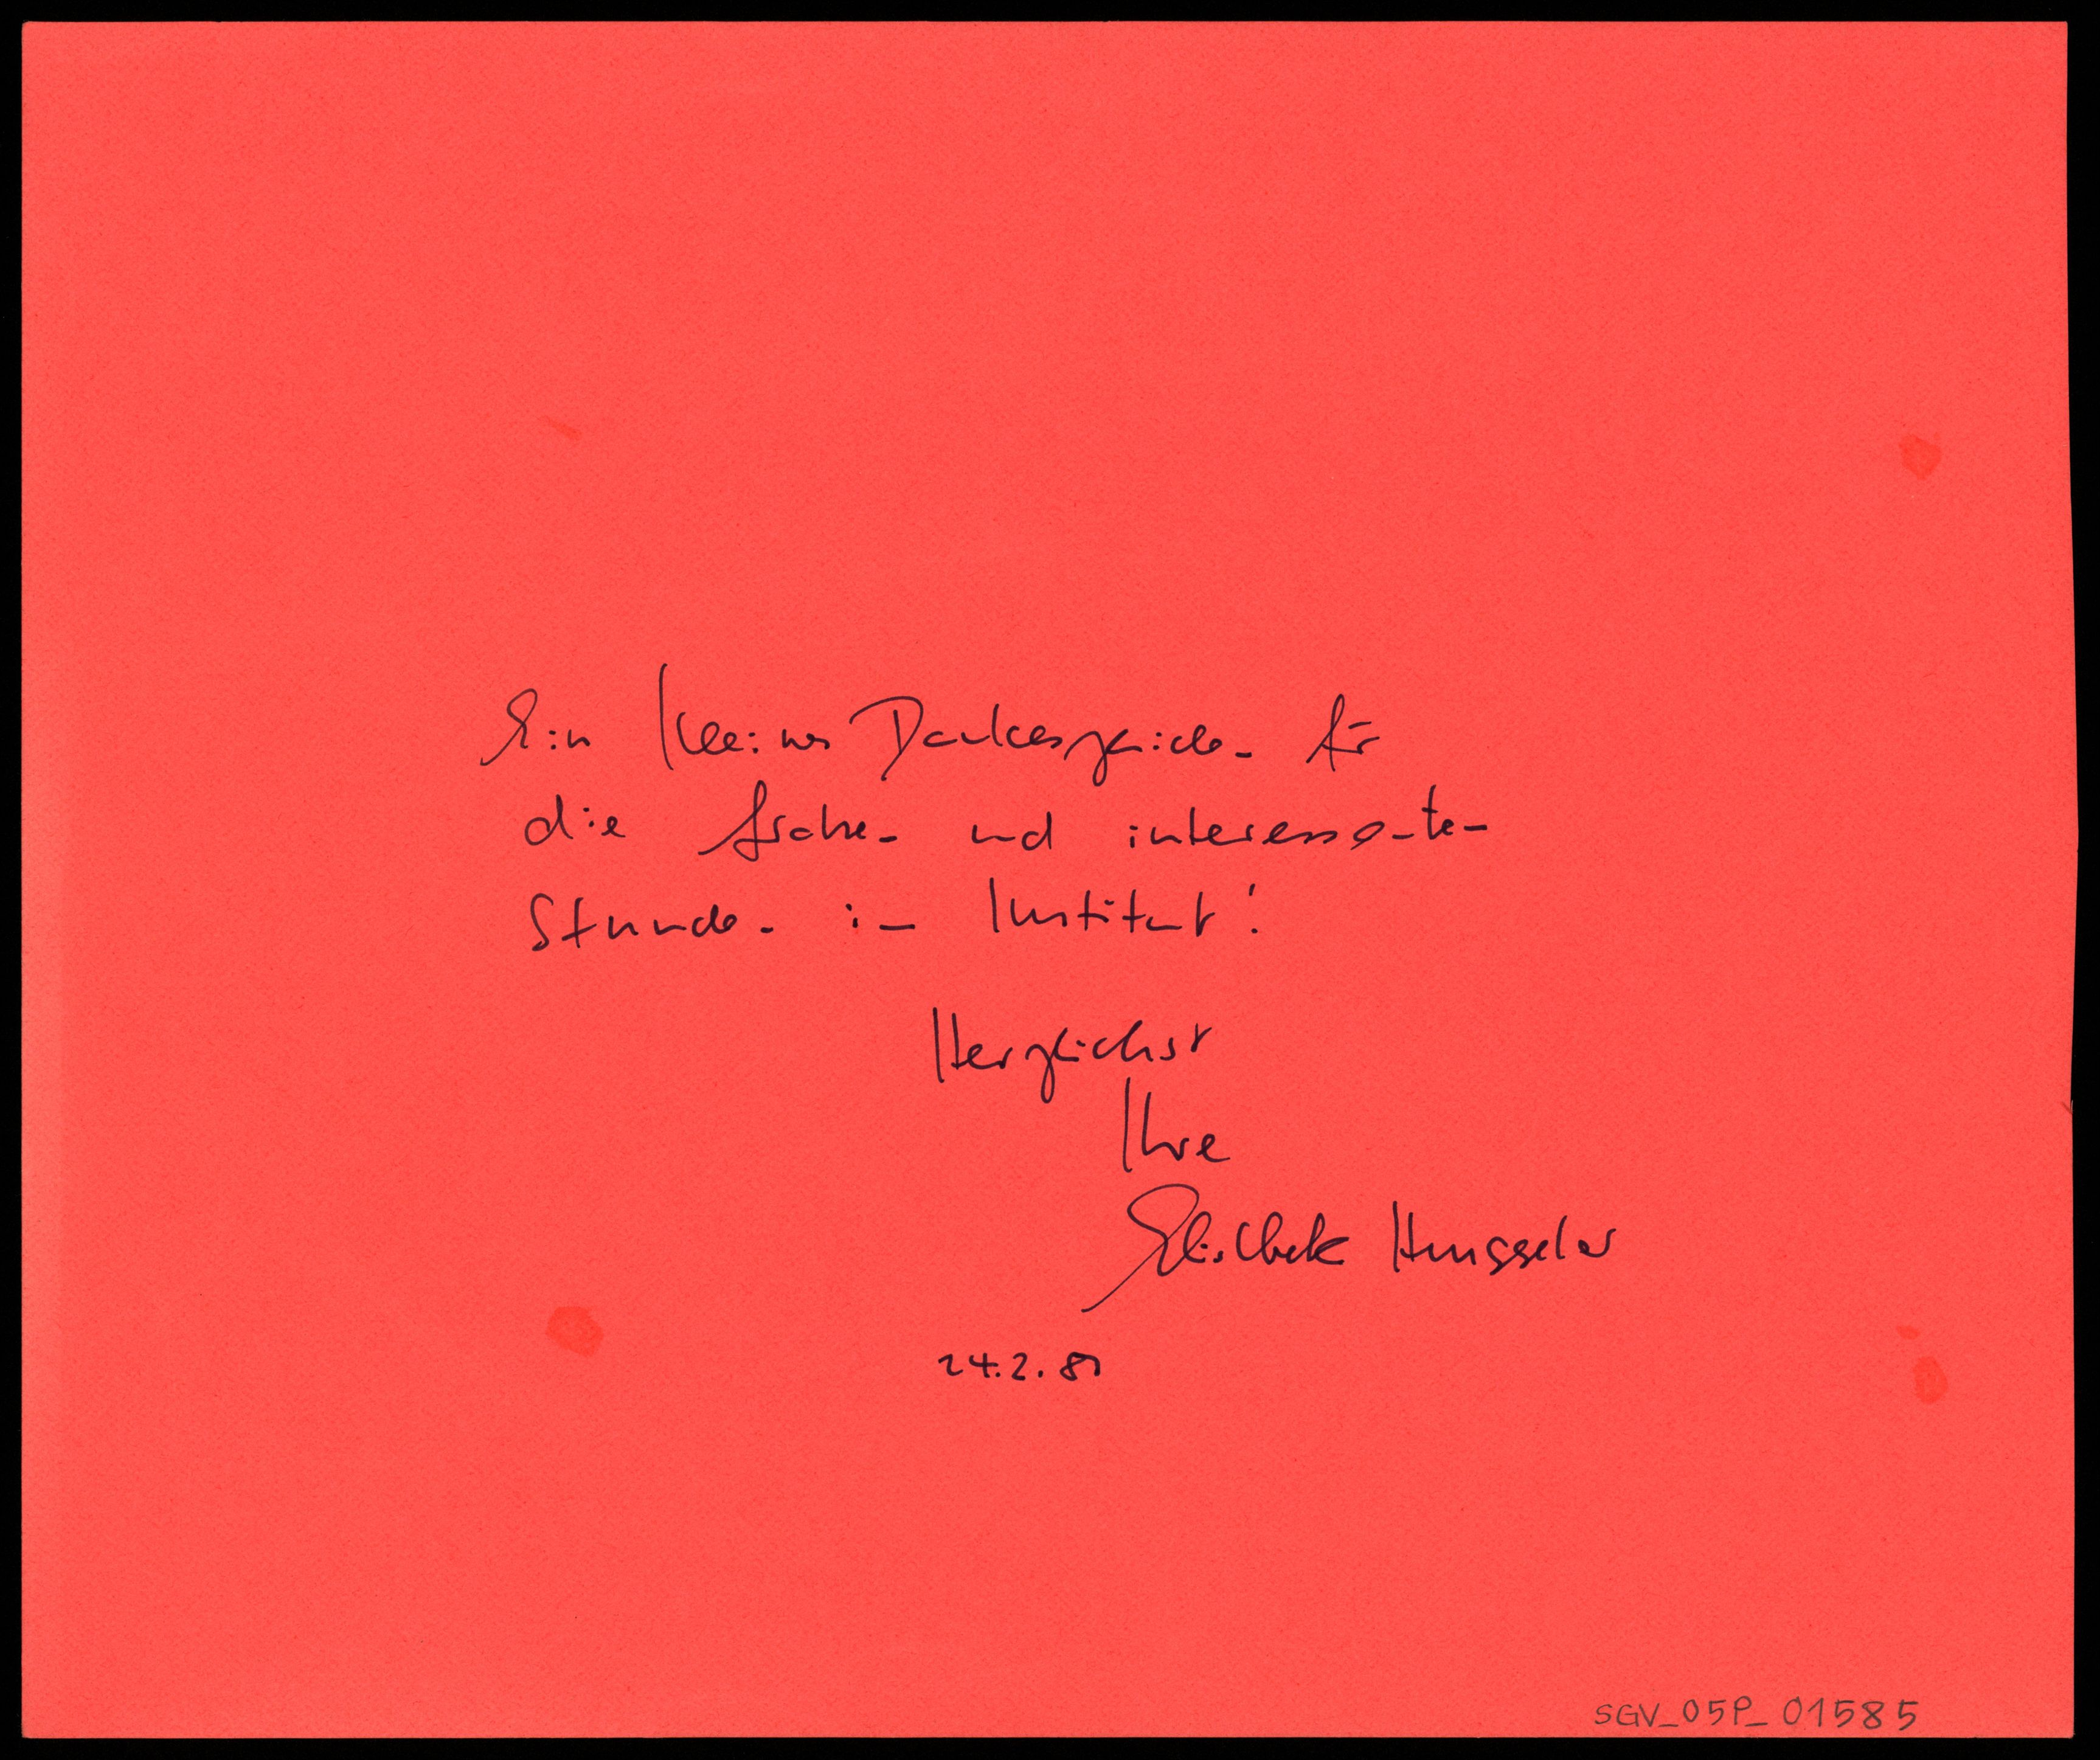 Ein kleines Dankeszeichen für
die frohen und interessanten
Stunden im Institut!
Herzlichst
Ihre
Elisabeth
24.2.
SGV_05P_01585